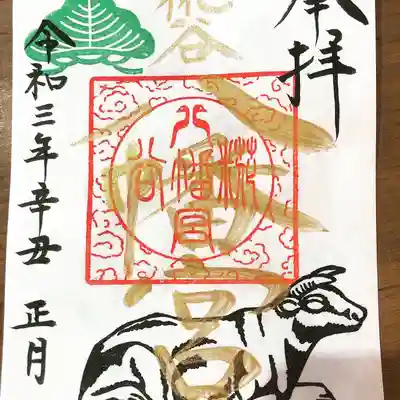 奉拝
糀谷
八幡宮
糀谷八幡宮
令和三年辛丑 正月